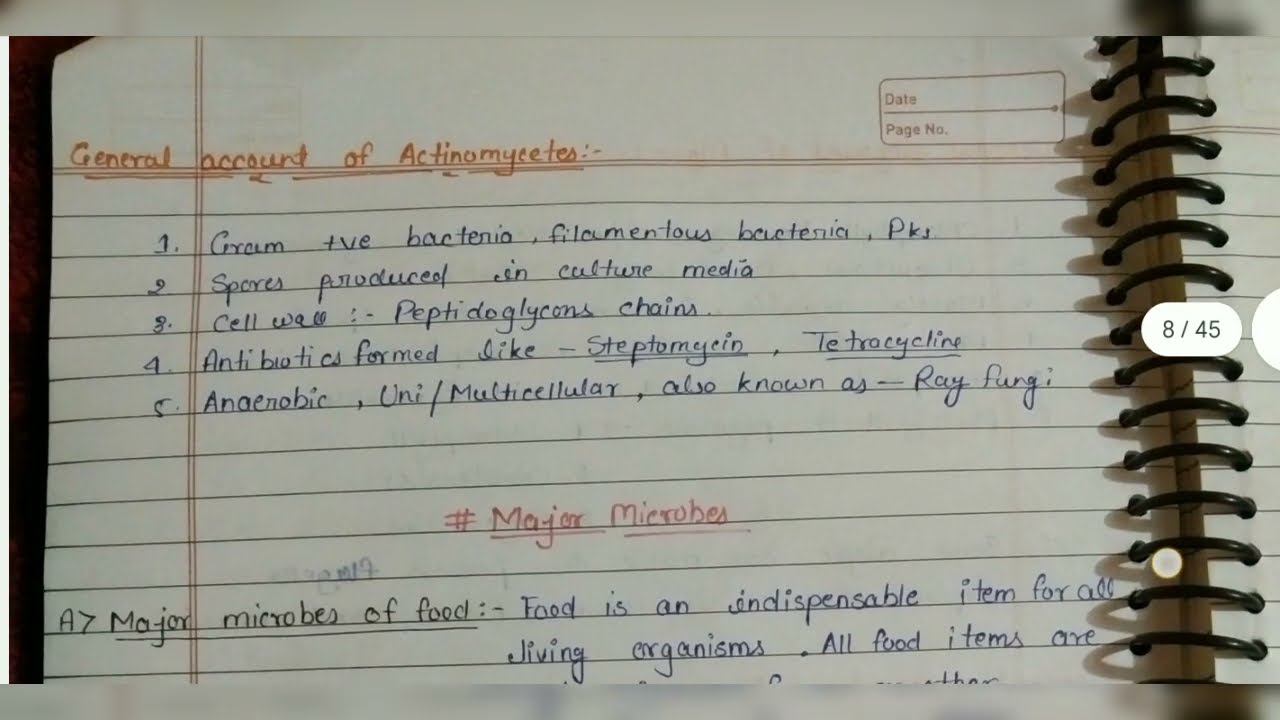 Date
Page No.
General account of Actinomycetes:-
1. Gram +ve bacteria, filamentous bacteria, Pks
2 Spores produced in culture media
3. Cell wall :- Peptidoglycons chains.
4. Antibiotics formed like - Steptomycin, Tetracycline
5. Anaerobic, Uni/Multicellular, also known as - Ray fungi
8 / 45
# Major Microbes
A> Major microbes of food:- Food is an indispensable item for all
living organisms. All food items are
other